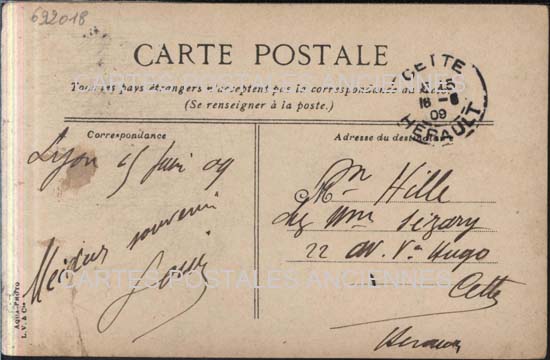 692018
CARTE POSTALE
Tous les pays étrangers n'acceptent pas la correspondance au dos
(Se renseigner à la poste.)
CETTE
16-6
09
HERAULT
CARTES POSTALES ANCIENNES
Correspondance
Adresse du destinataire
Lyon 15 Juin 09
souvenir
Louis
Mr Hille
chez Mme Sizary
22 av. Vor Hugo
Cette
Herault
CARTES POSTALES ANCIENNES
AQUA-PHOTO
L. V. & Cie